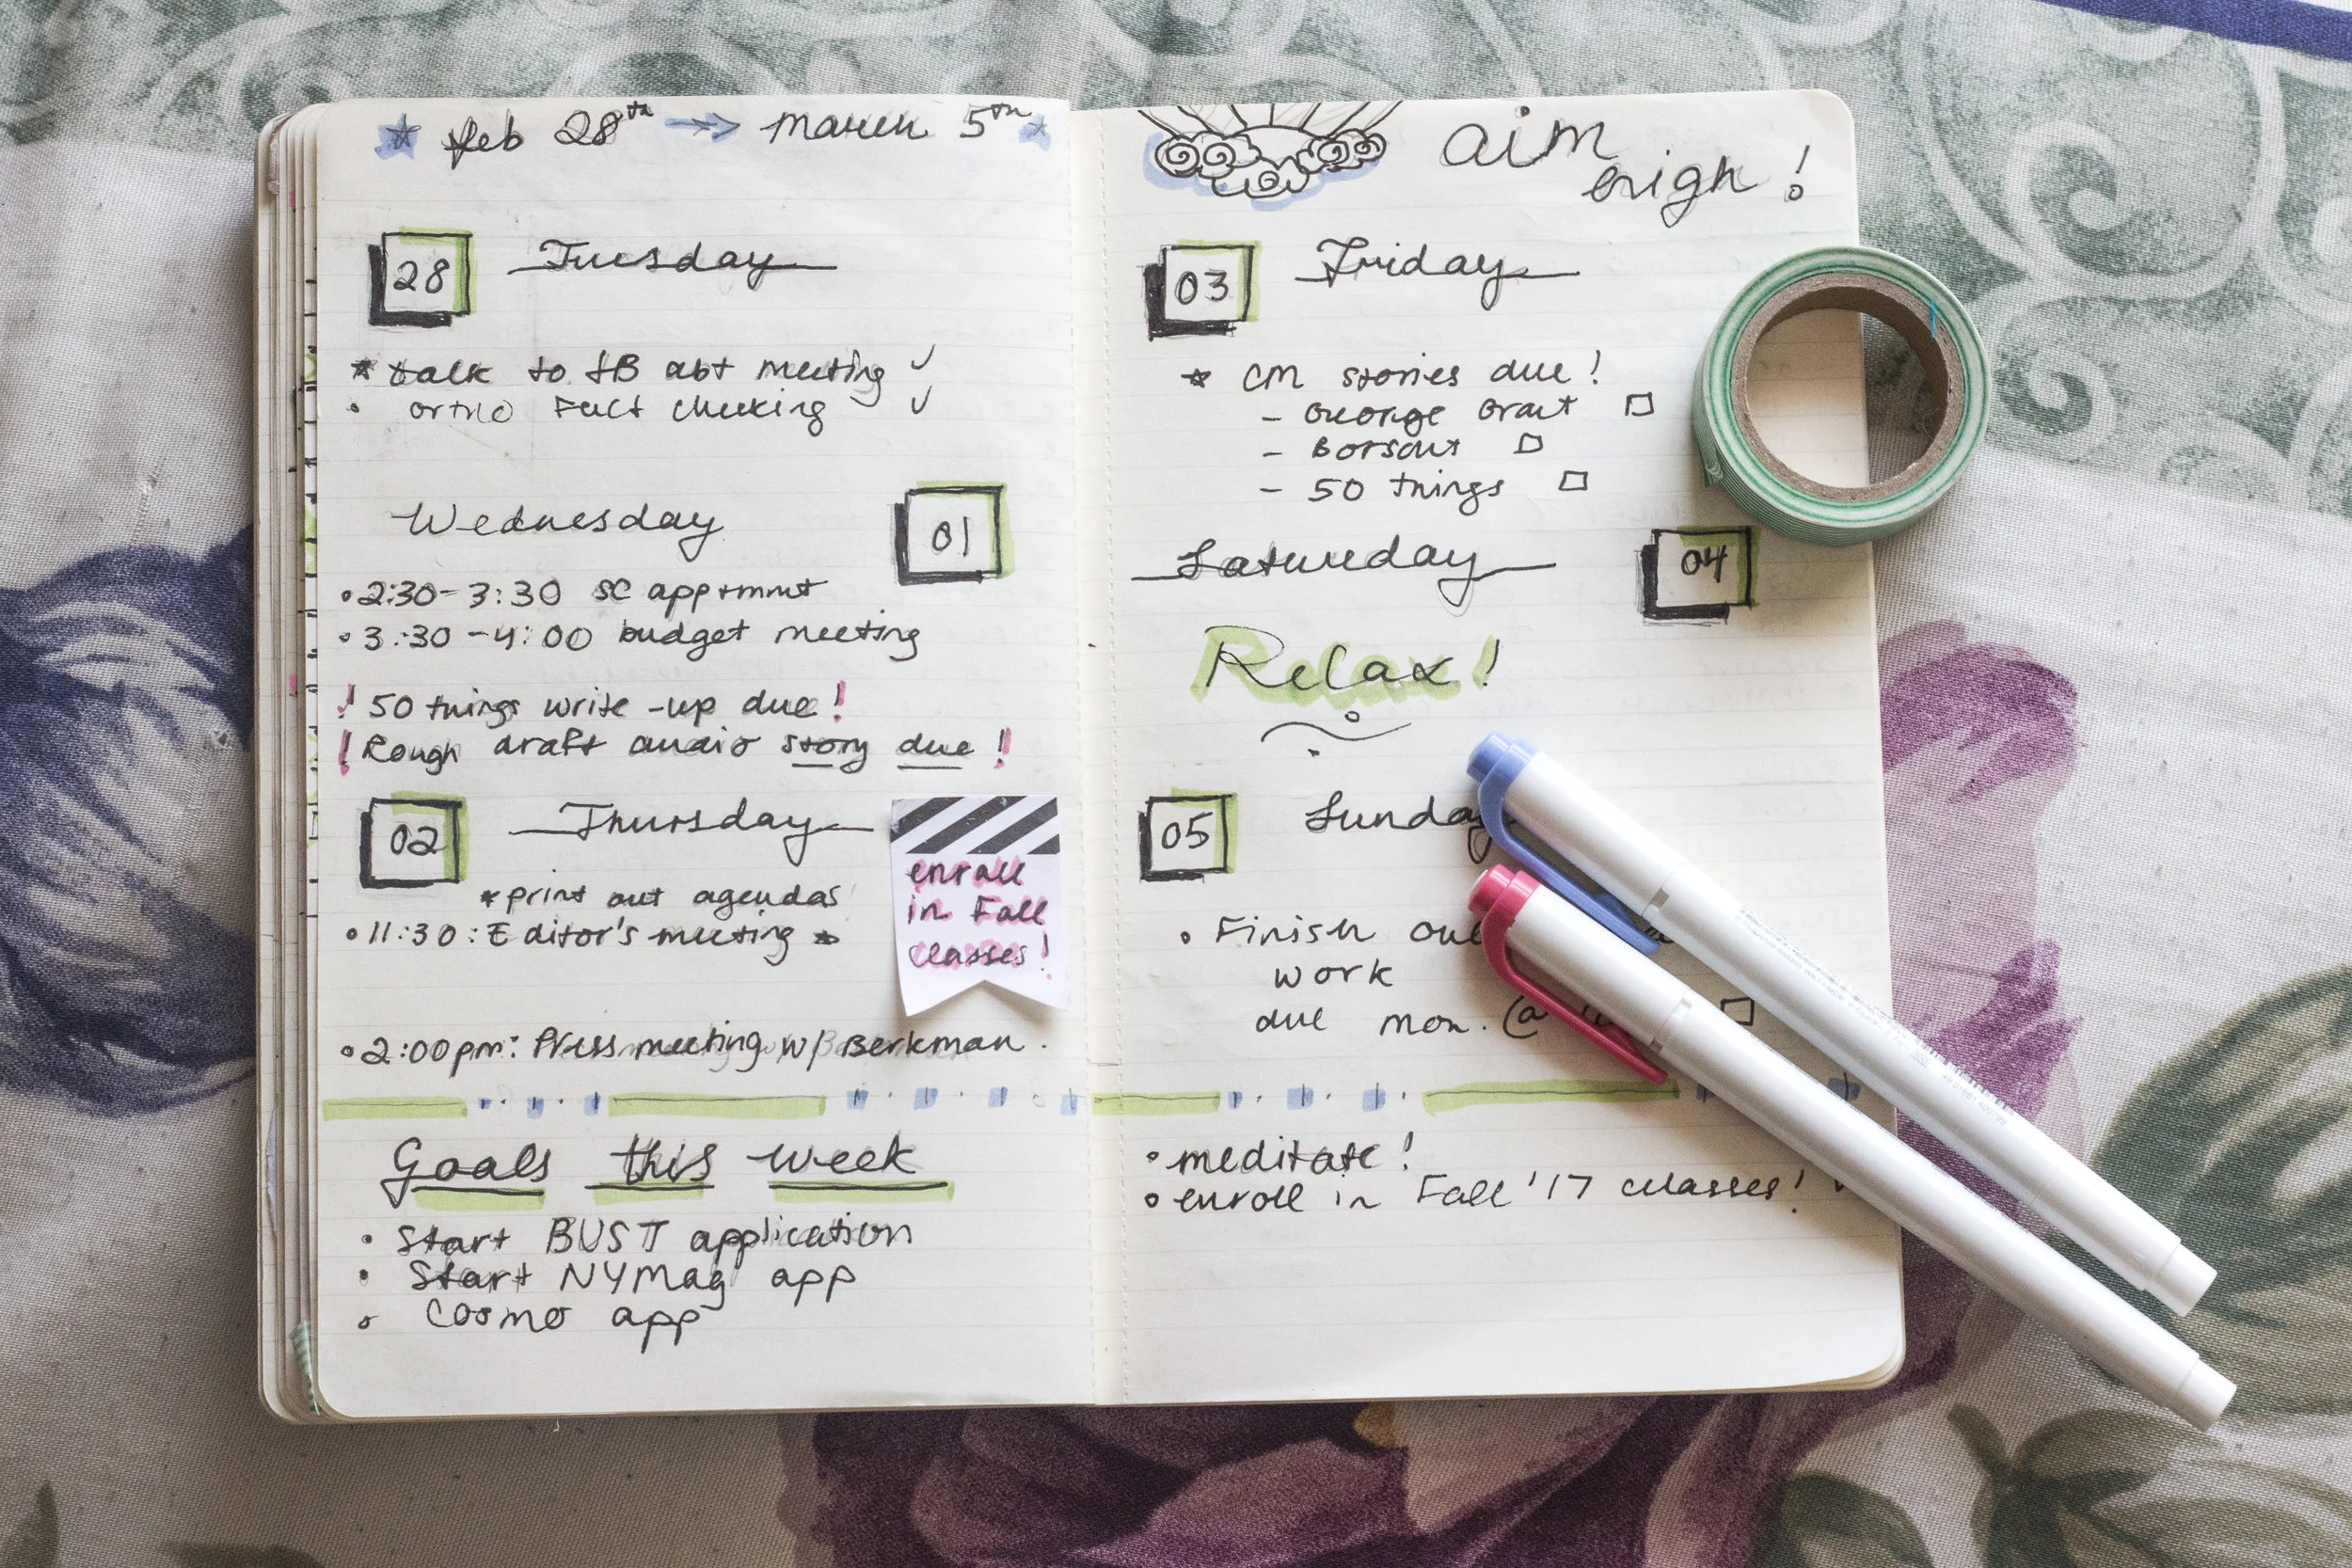 feb 28th → march 5th
28 Tuesday
talk to JB abt meeting ✓
ortho fact checking ✓
Wednesday 01
2:30-3:30 SC apptmnt
3:30-4:00 budget meeting
! 50 things write-up due!
! Rough draft audio story due!
02 Thursday
*print out agendas
11:30: Editor's meeting *
enroll
in Fall
classes!
2:00pm: Press meeting w/ Berkman.
Goals this week
Start BUST application
Start NYMag app
Cosmo app
aim
high!
03 Friday
* CM stories due!
- George
- 50 things
Saturday 04
Relax!
05 Sunday
Finish
work
due mon. @
meditate!
enroll in Fall '17 classes!